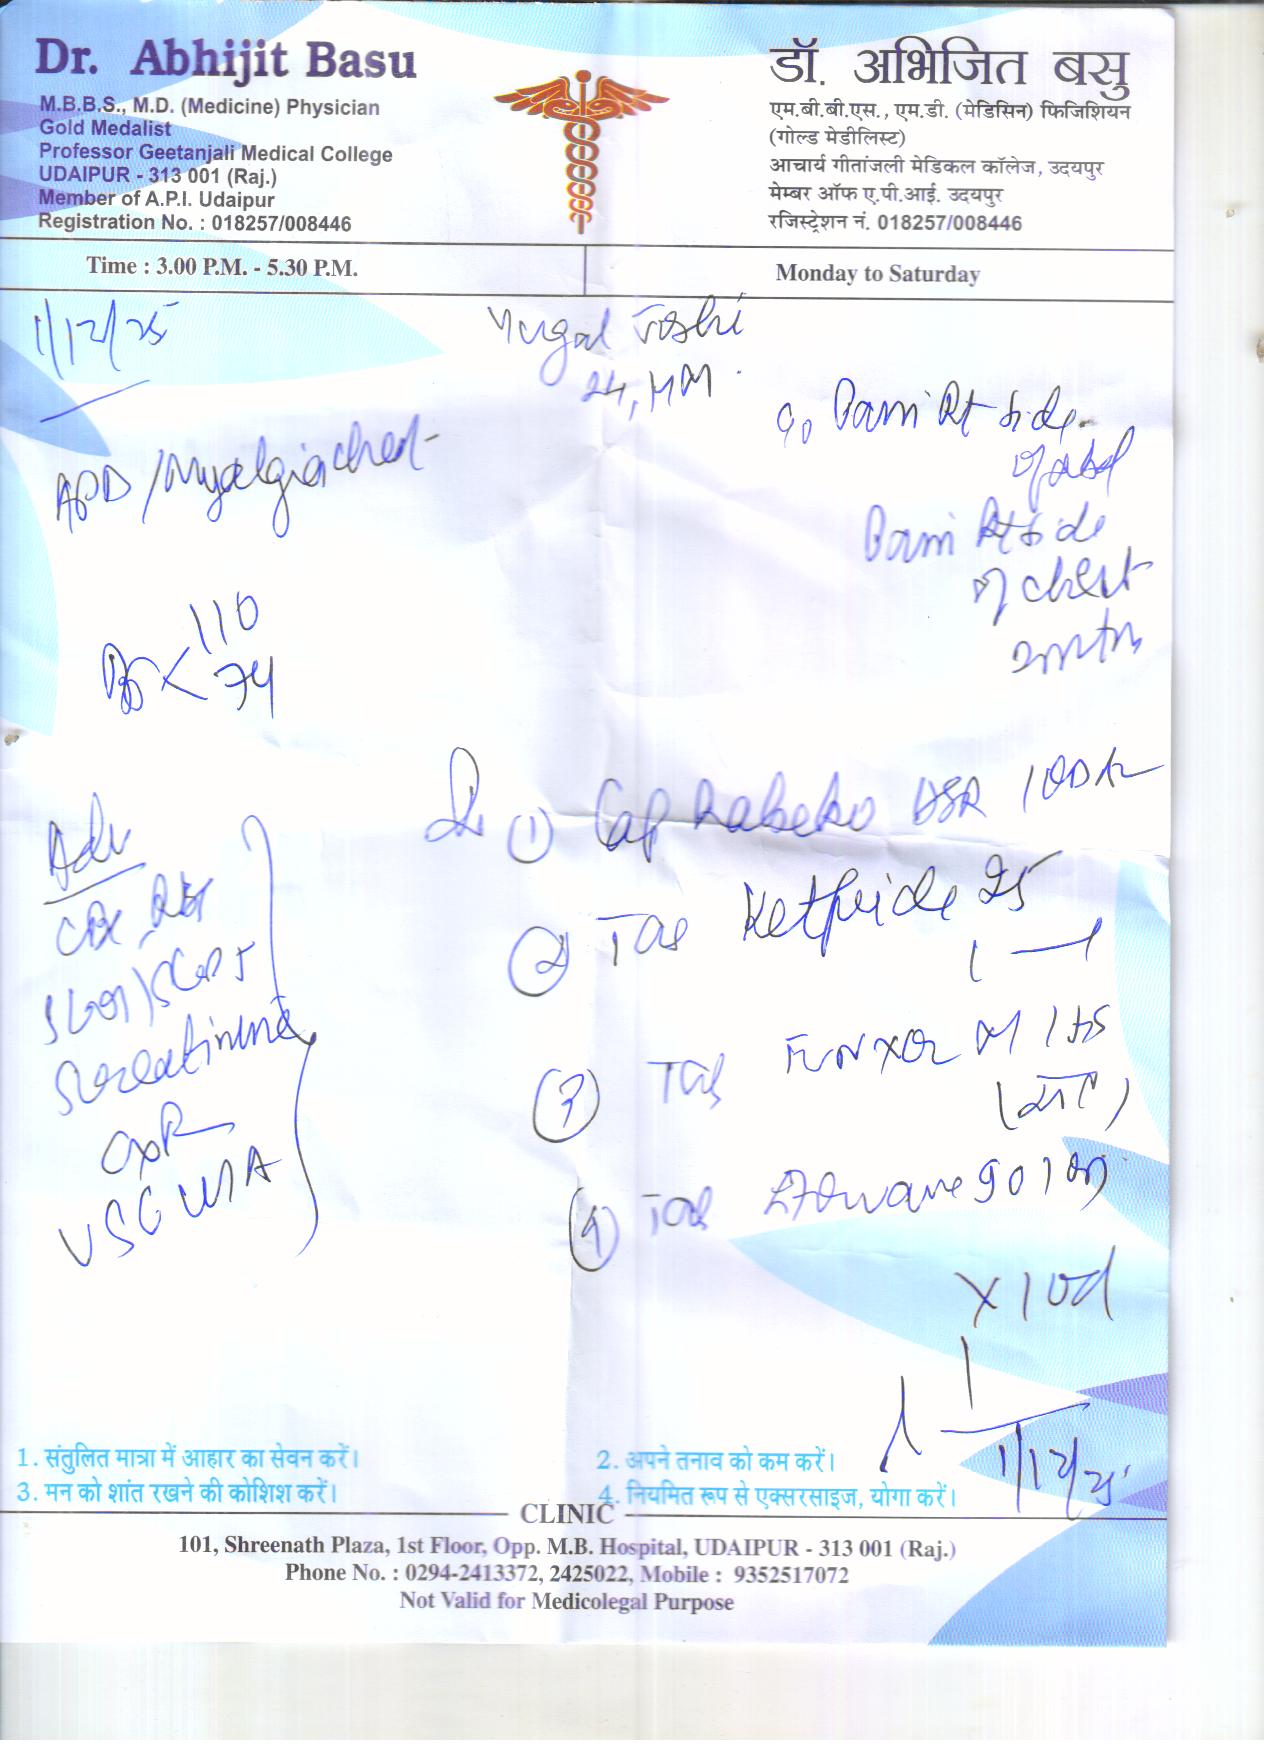 Dr. Abhijit Basu
M.B.B.S., M.D. (Medicine) Physician
Gold Medalist
Professor Geetanjali Medical College
UDAIPUR - 313 001 (Raj.)
Member of A.P.I. Udaipur
Registration No. : 018257/008446
डॉ. अभिजित बसु
एम.बी.बी.एस., एम.डी. (मेडिसिन) फिजिशियन
(गोल्ड मेडीलिस्ट)
आचार्य गीतांजली मेडिकल कॉलेज, उदयपुर
मेम्बर ऑफ ए.पी.आई. उदयपुर
रजिस्ट्रेशन नं. 018257/008446
Time : 3.00 P.M. - 5.30 P.M.
Monday to Saturday
1/12/25
Yugal Joshi
24,
c/o Pain Rt side
of abd
Pain Rt side
of chest
APD / Myalgia chest
110
74
Adv
CBC
S creatinine
CXR
USG W/A
① Cap Rabeko DSR 1 OD
② Tab 25
1 — 1
③ Tab M 1 HS
④ Tab 90 1
x 10d
1/12/25
1. संतुलित मात्रा में आहार का सेवन करें।
2. अपने तनाव को कम करें।
3. मन को शांत रखने की कोशिश करें।
4. नियमित रूप से एक्सरसाइज, योगा करें।
CLINIC
101, Shreenath Plaza, 1st Floor, Opp. M.B. Hospital, UDAIPUR - 313 001 (Raj.)
Phone No. : 0294-2413372, 2425022, Mobile : 9352517072
Not Valid for Medicolegal Purpose